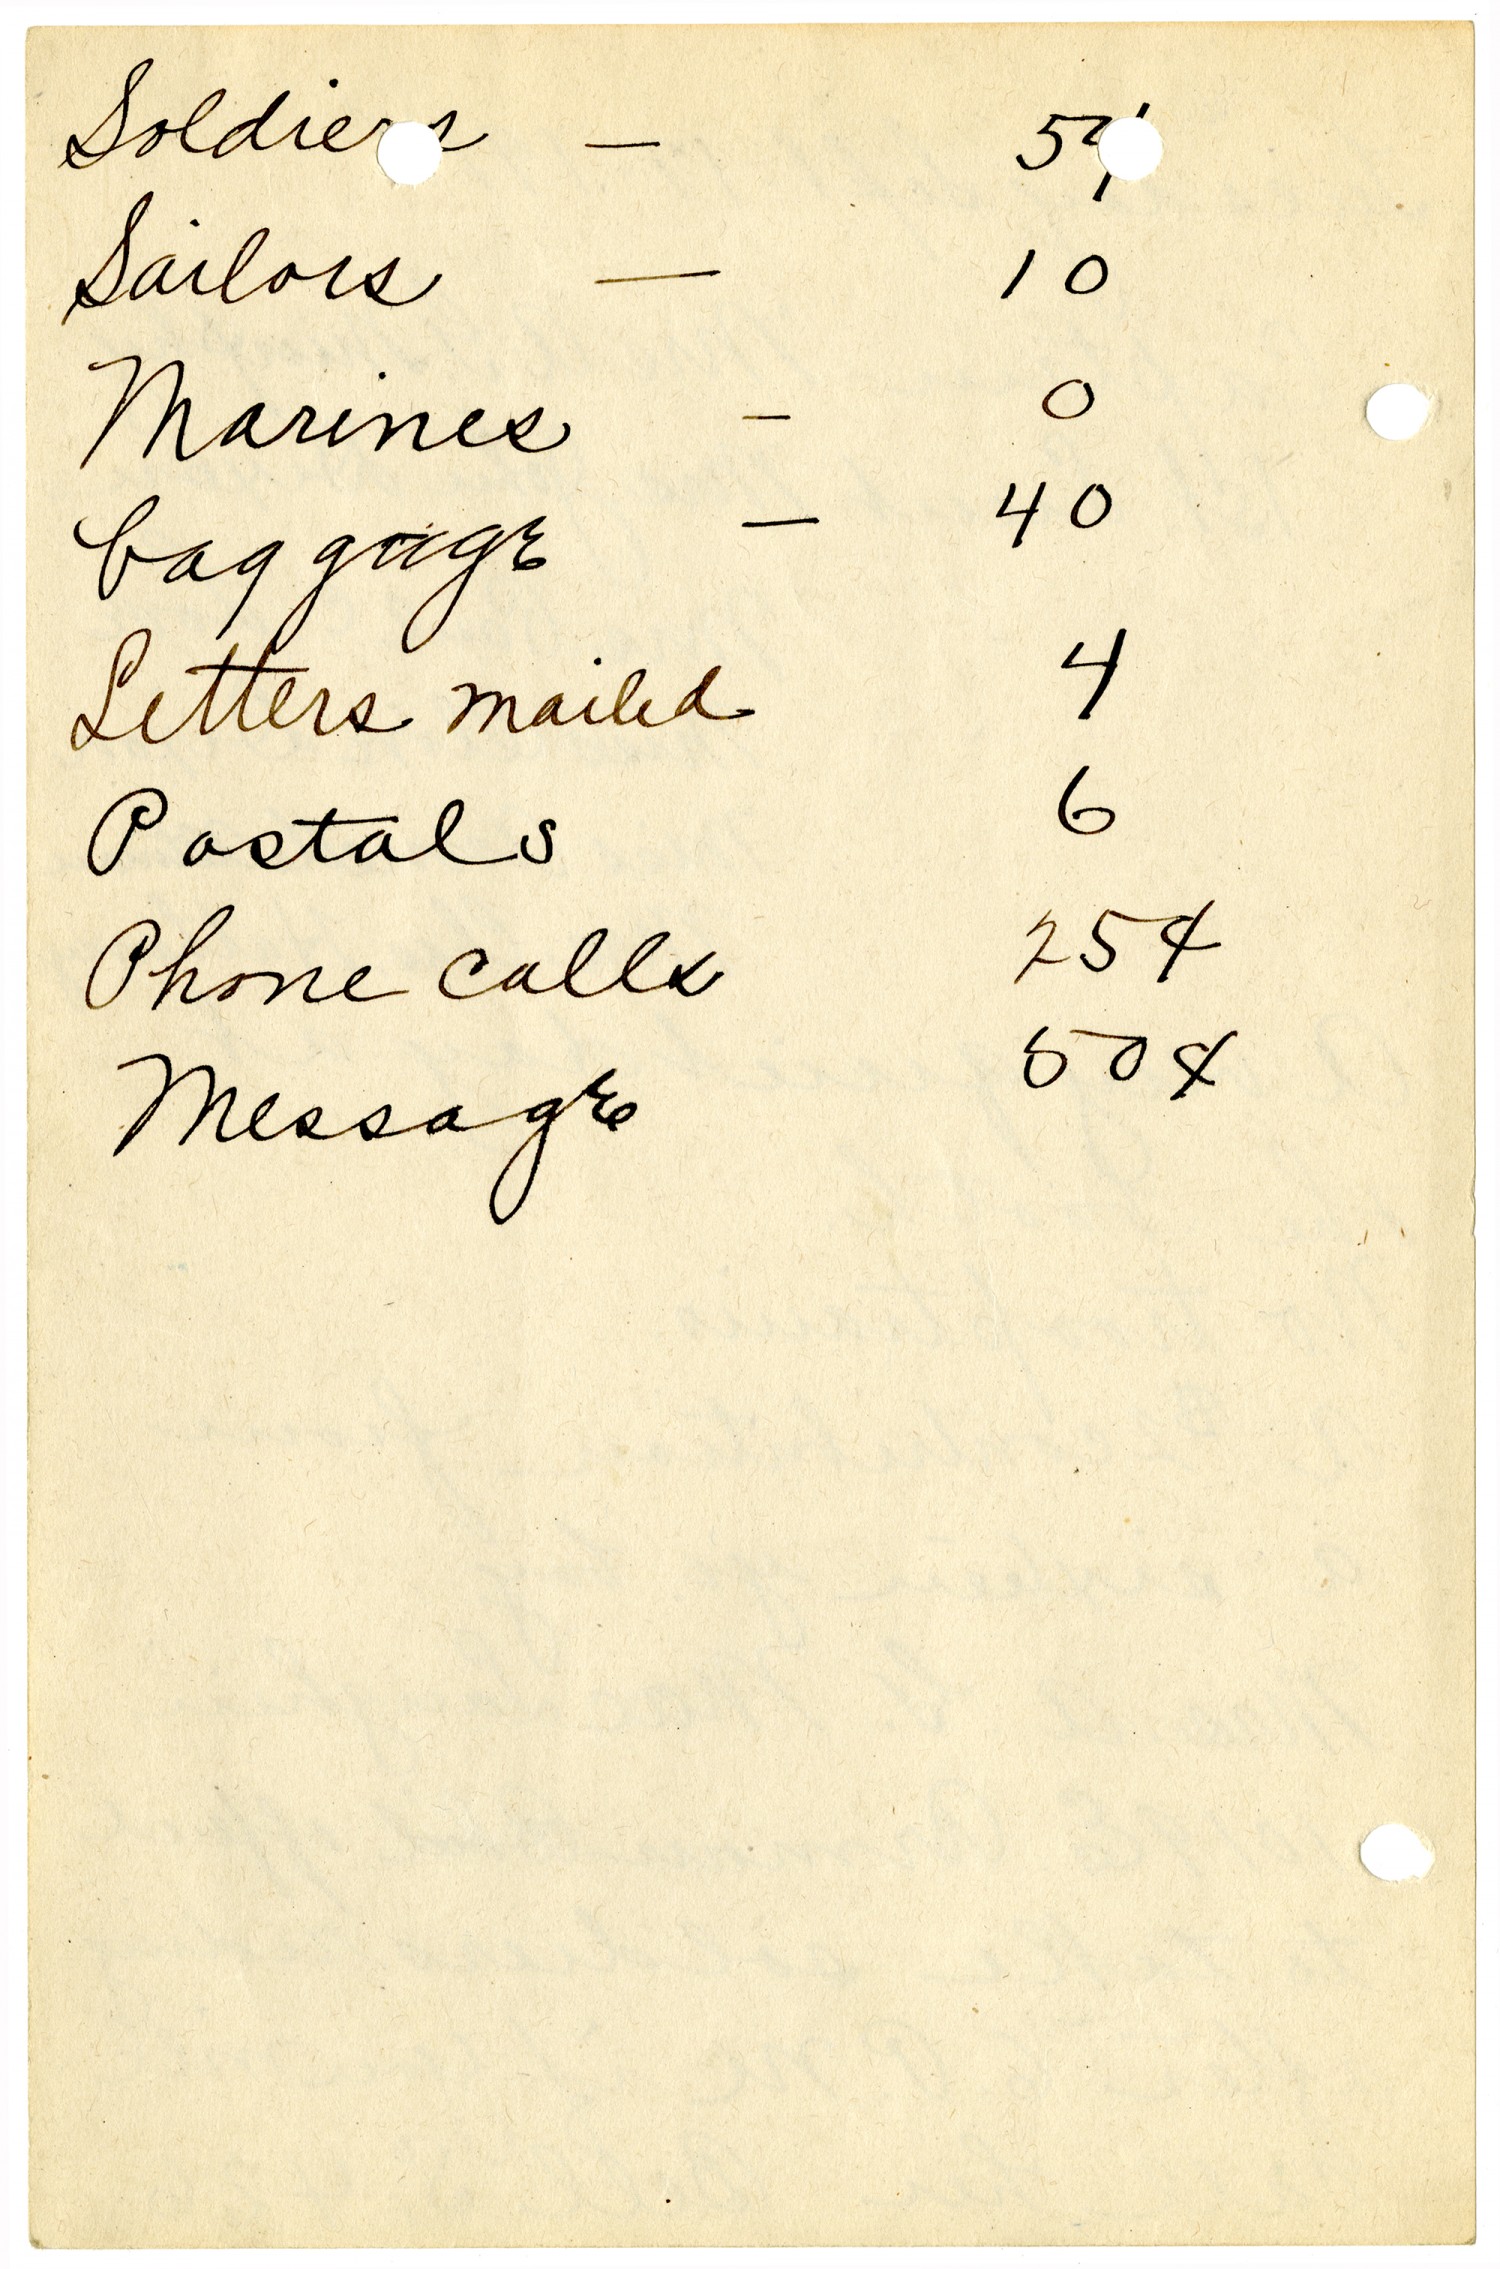 Soldiers — 54
Sailors — 10
Marines — 0
baggage — 40
Letters mailed 4
Postals 6
Phone calls 25¢
Message 50¢